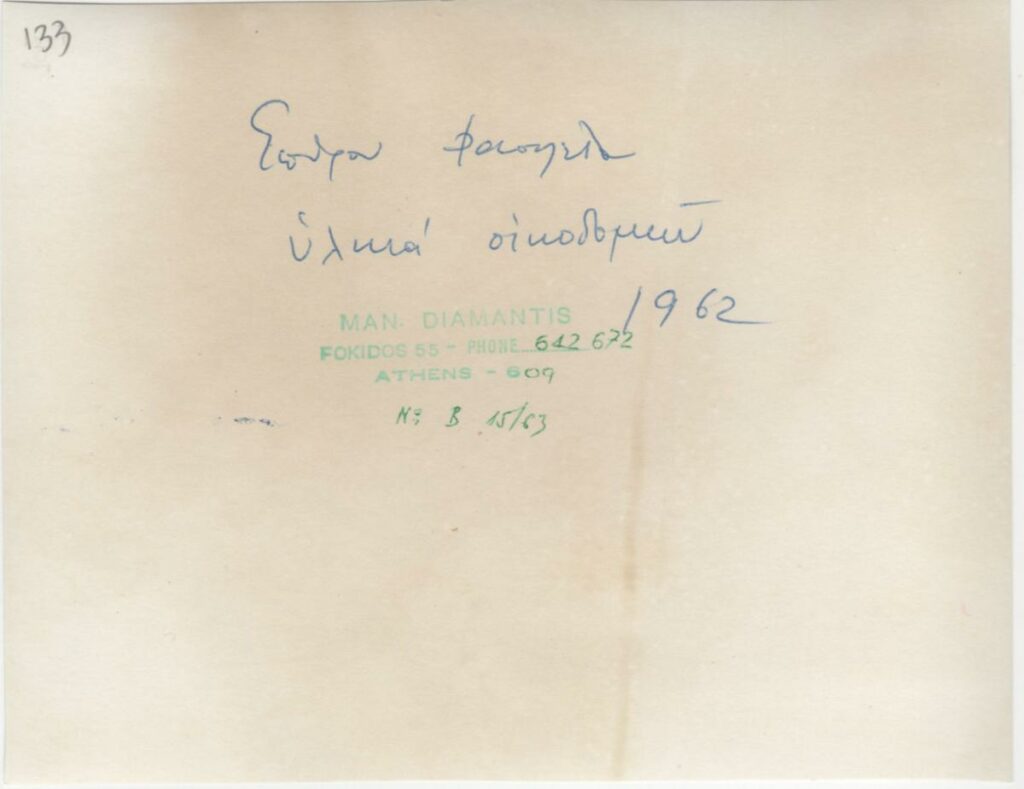 133
Σπύρου
ὑλικά οἰκοδομῶν
1962
MAN. DIAMANTIS
FOKIDOS 55 - PHONE 642 672
ATHENS - 609
No B 15/63